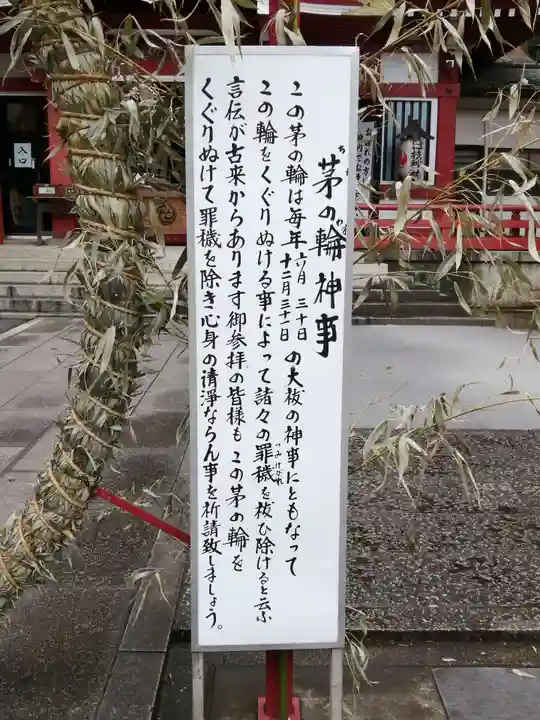 茅の輪神事
ち
わ
この茅の輪は毎年 六月 三十日 十二月三十一日 の大祓の神事にともなって
この輪をくぐりぬける事によって諸々の罪穢を祓ひ除けると云ふ
つみけがれ
言伝が古来からあります御参拝の皆様も この茅の輪を
くぐりぬけて罪穢を除き心身の清浄ならん事を祈請致しましょう。
入口